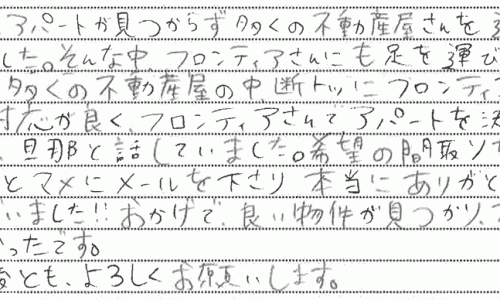 アパートが見つからず多くの不動産屋さんを
した。そんな中フロンティアさんにも足を運び
多くの不動産屋の中、断トツにフロンティ
対応が良く、フロンティアさんでアパートを決
、旦那と話していました。希望の間取りで
とマメにメールを下さり本当にありがと
いました!!おかげで、良い物件が見つかり、
かったです。
後とも、よろしくお願いします。